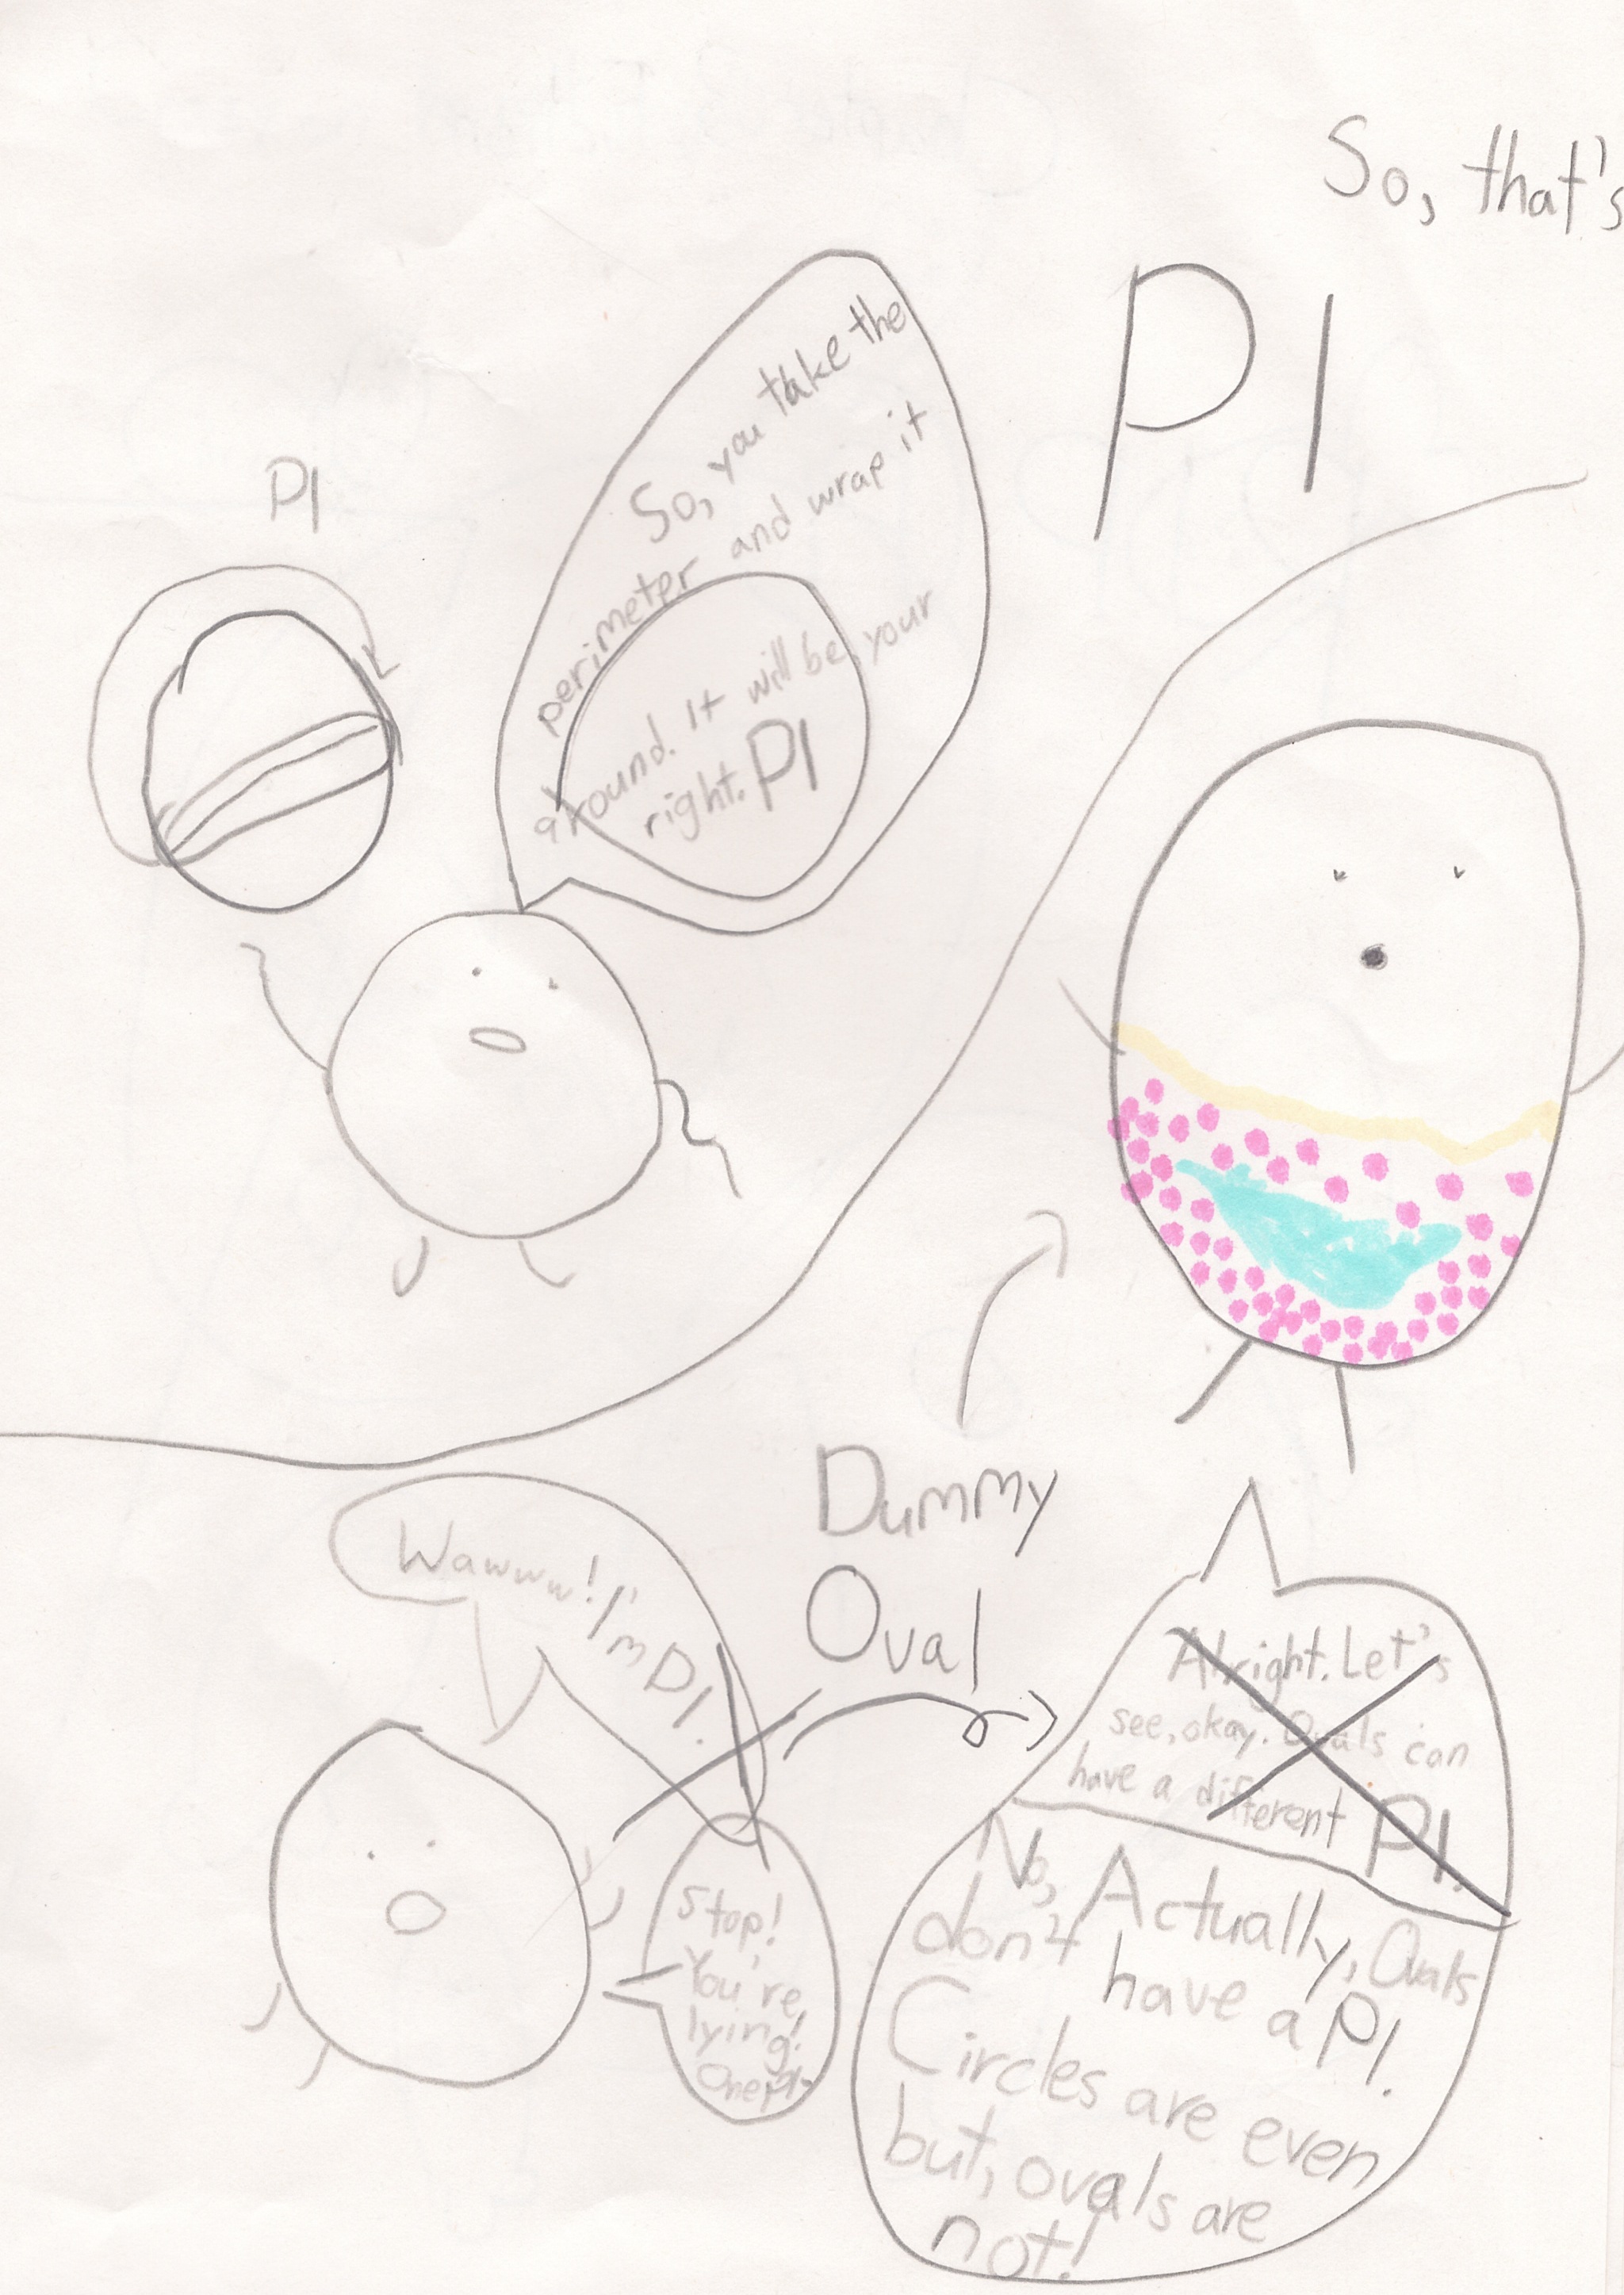 So, that's
PI
PI
So, you take the
perimeter and wrap it
around. It will be your
right. PI
Dummy
Oval
Wawww! I'm PI.
Stop!
You're
lying!
Alright. Let's
see, okay. Ovals can
have a different PI.
No, Actually, Ovals
don't have a PI.
Circles are even
but, ovals are
not!